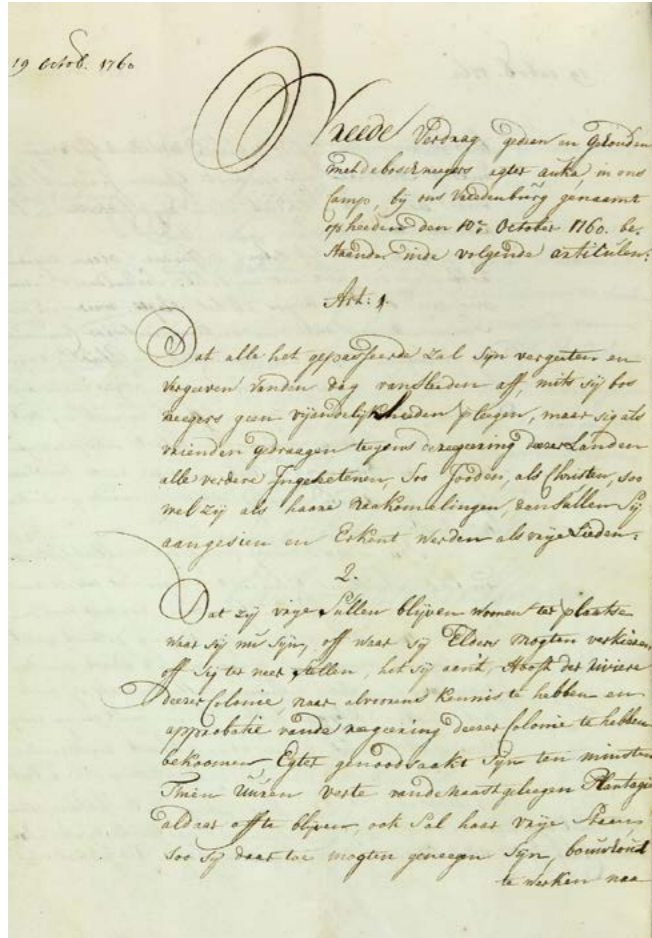 19 octob. 1760
Vreede Verdrag gedaen en gehouden
met de boschneegers agter auka, in ons
Camp, bij ons Vreedenburg genaamt
op heeden den 10e October 1760. be,
staende in de volgende articulen:
Art: 1.
Dat alle het gepasseerde zal sijn vergeeten en
vergeeven vanden dag van heeden aff, mits sij bos
neegers geen vijandelijkheeden pleegen, maar sig als
vrienden gedraagen tegens de regeering deeser Landen
alle verdere Ingesetenen, Soo Jooden, als Christen, soo
wel zij als haare Naakomelingen, den Sullen Sij
aangesien en Erkent werden als vrije Lieden:
2.
Dat zij vrije Sullen blijven woonen ter plaatse
waar sij nu sijn, off waar sij Elders mogten verkiesen
off sig ter neer stellen, het sij aan't Hooft der riviere
deeser Colonie, naar alvoorens kennis te hebben en
approbatie vande regeering deeser Colonie te hebben
bekoomen Egter genoodsaakt sijn ten minsten
Thien Uuren verte vande naast geleegen Plantagie
aldaar aff te blijven, ook Sal haar vrije Staan,
soo sij daar toe mogten geneegen sijn, bouwhout
te werken naa